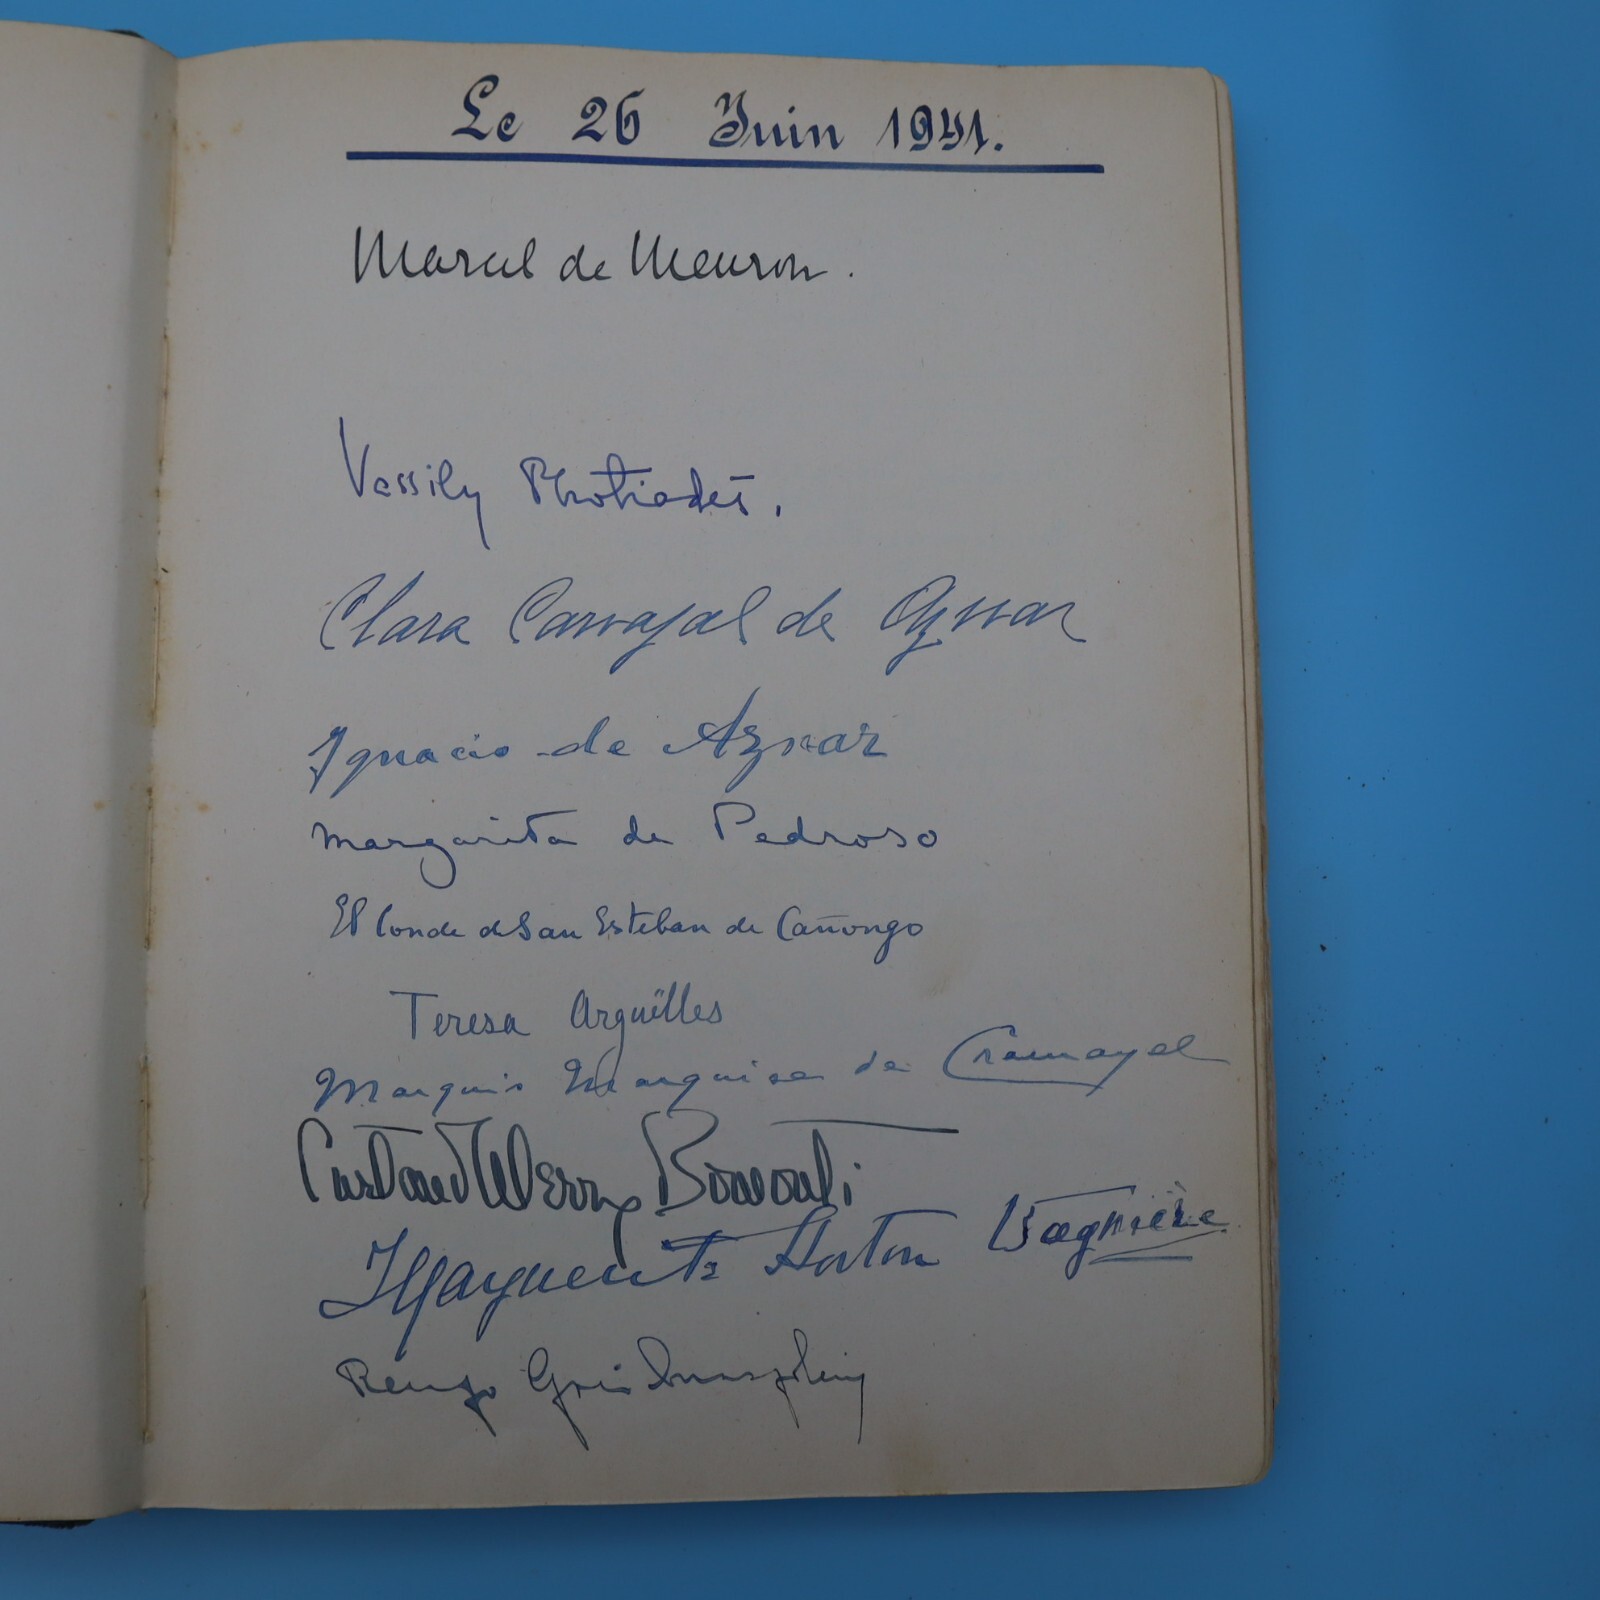 Le 26 Juin 1941.
Marcel de Meuron.
Vassily Photiadès.
Clara Carvajal de Aznar
Ignacio de Aznar
Margarita de Pedroso
El Conde de San Esteban de Cañongo
Teresa Argüelles
Marquis Marquise de Cramayel
Marguerite Horton Wagnière
Renzo